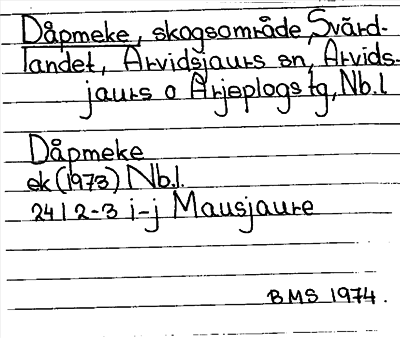 Dåpmeke, skogsområde, Svärd-
landet, Arvidsjaurs sn, Arvids-
jaurs o Arjeplogs tg, Nb.l
Dåpmeke
ek (1973) Nb.l.
24 I 2-3 i-j Mausjaure
BMS 1974.